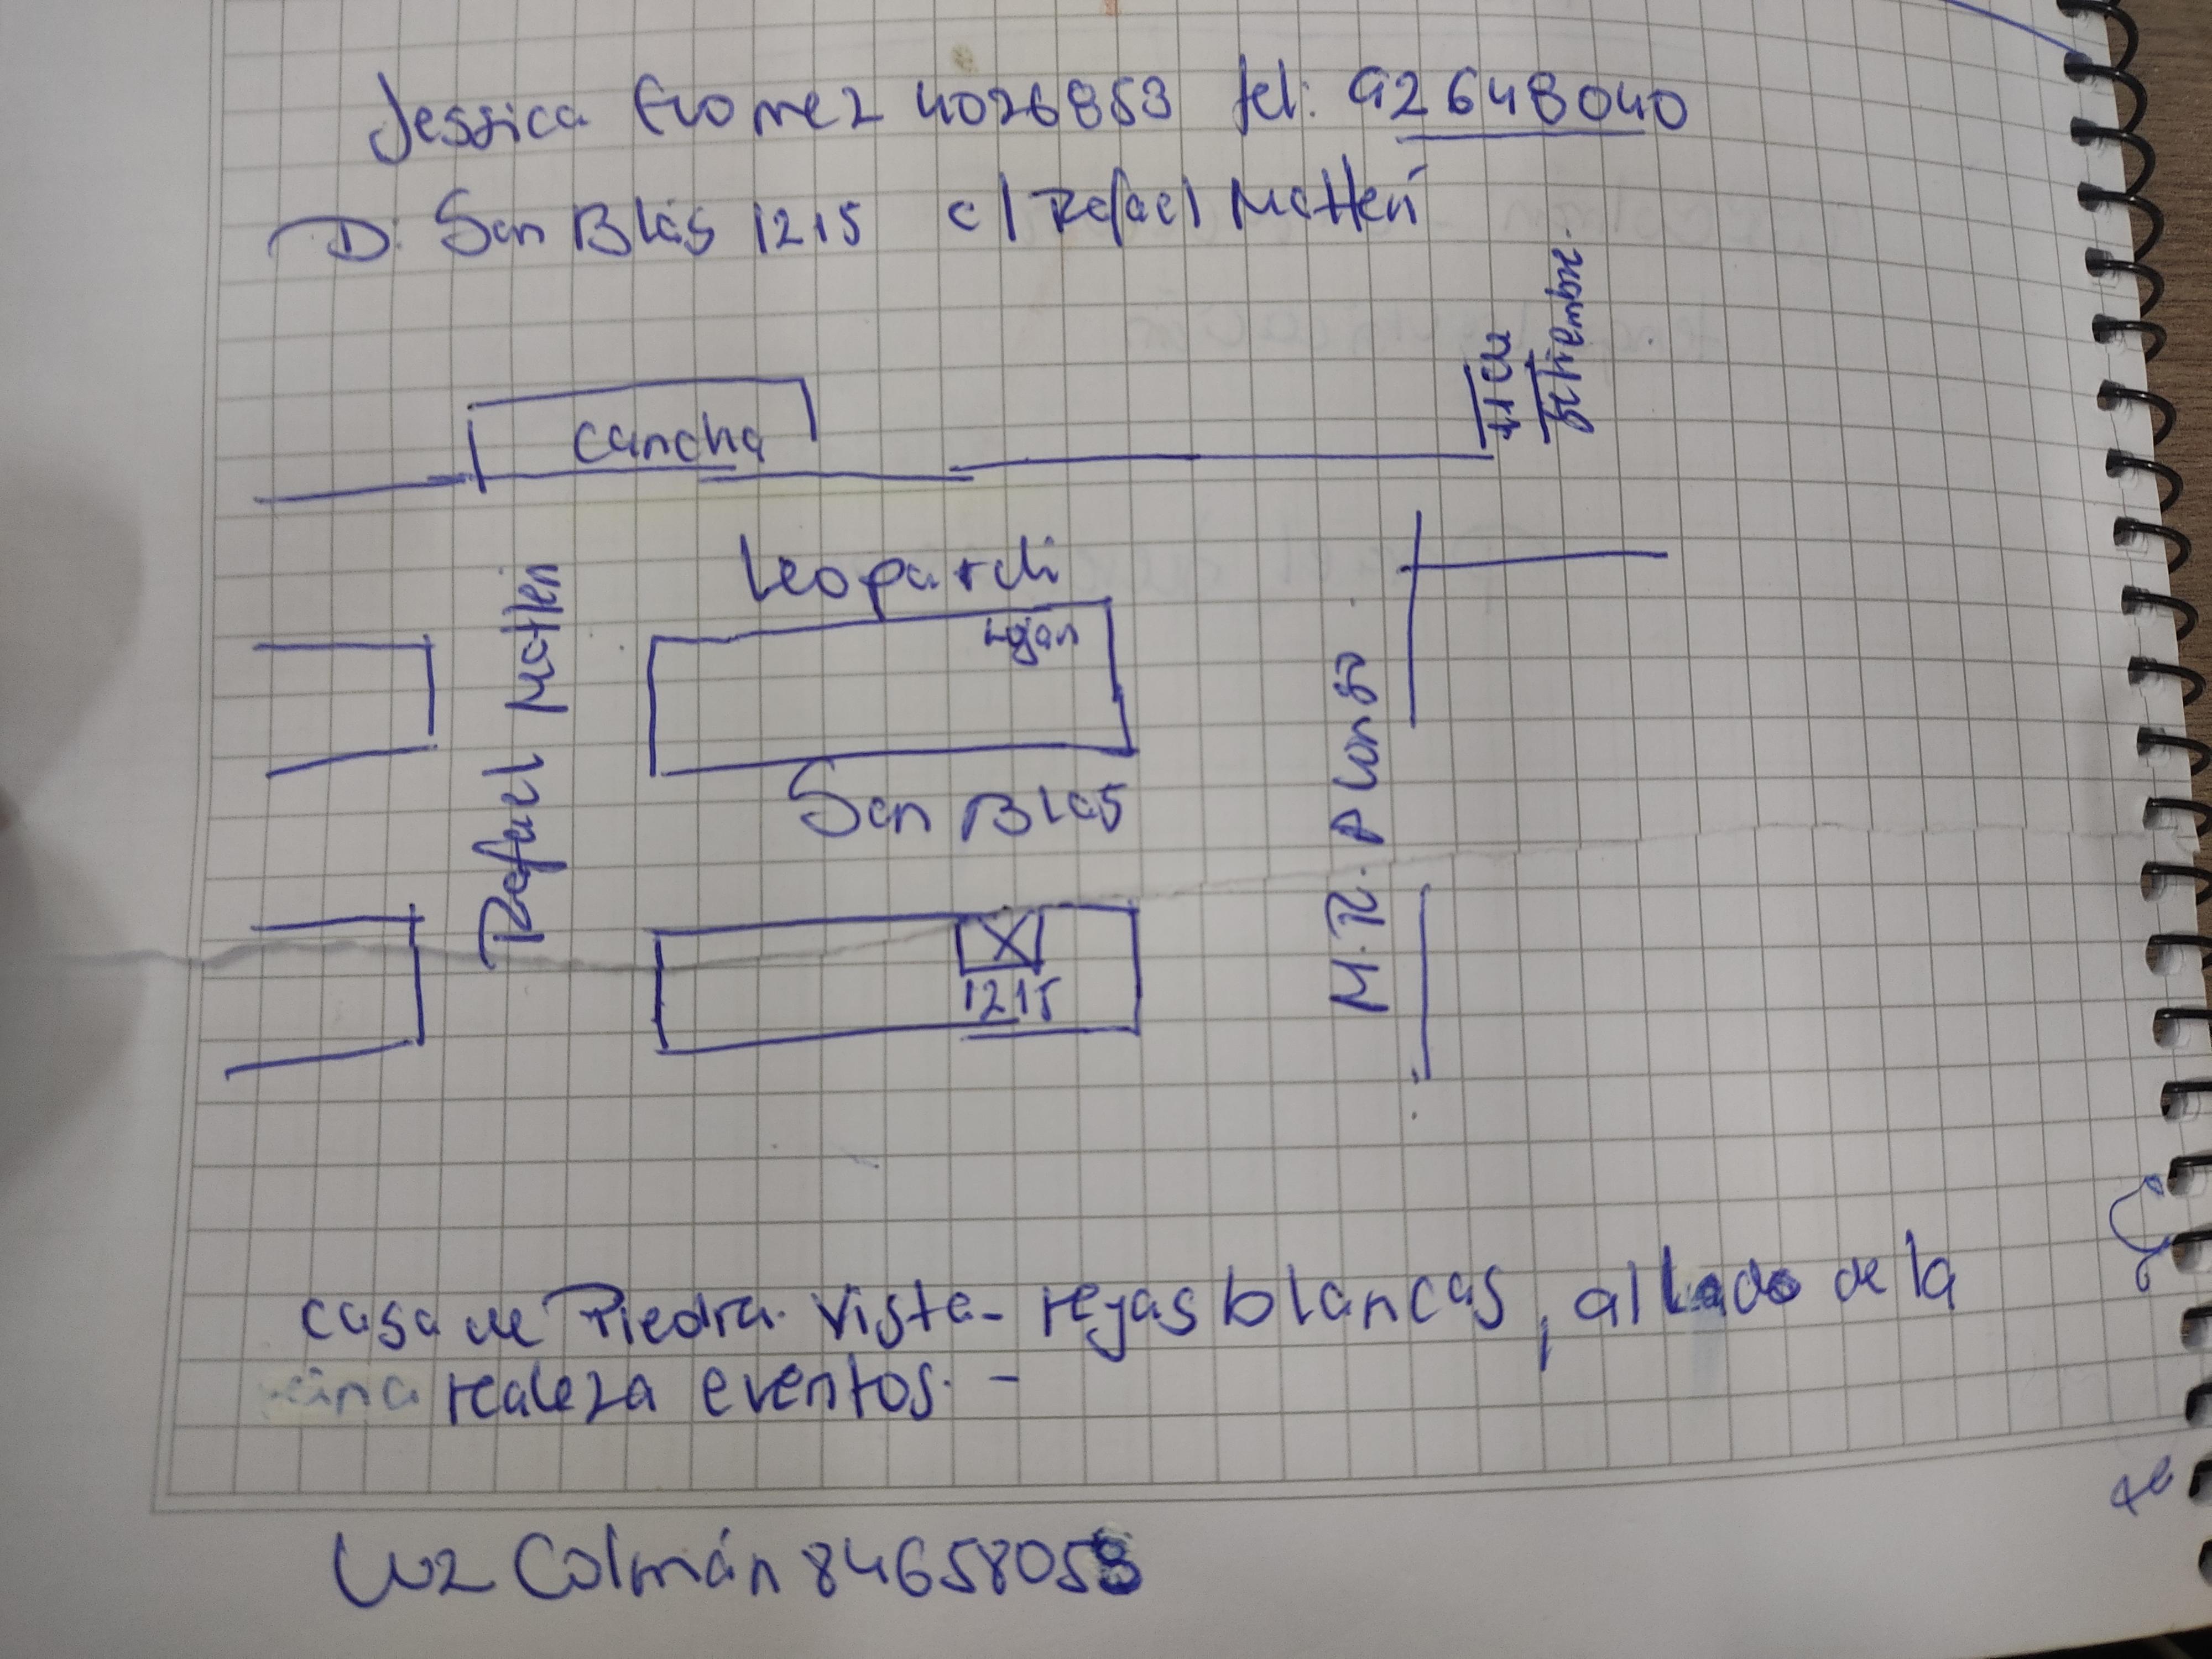 Jessica Gomez 4026853 tel: 92648040
D: San Blas 1215 c/ Rafael Mattei
cancha
Leopardi
Rafael Mattei
San Blas
M. R. Alonso
1215
casa de Piedra vista - rejas blancas, al lado de la
realeza eventos. -
Luz Colmán 84658058